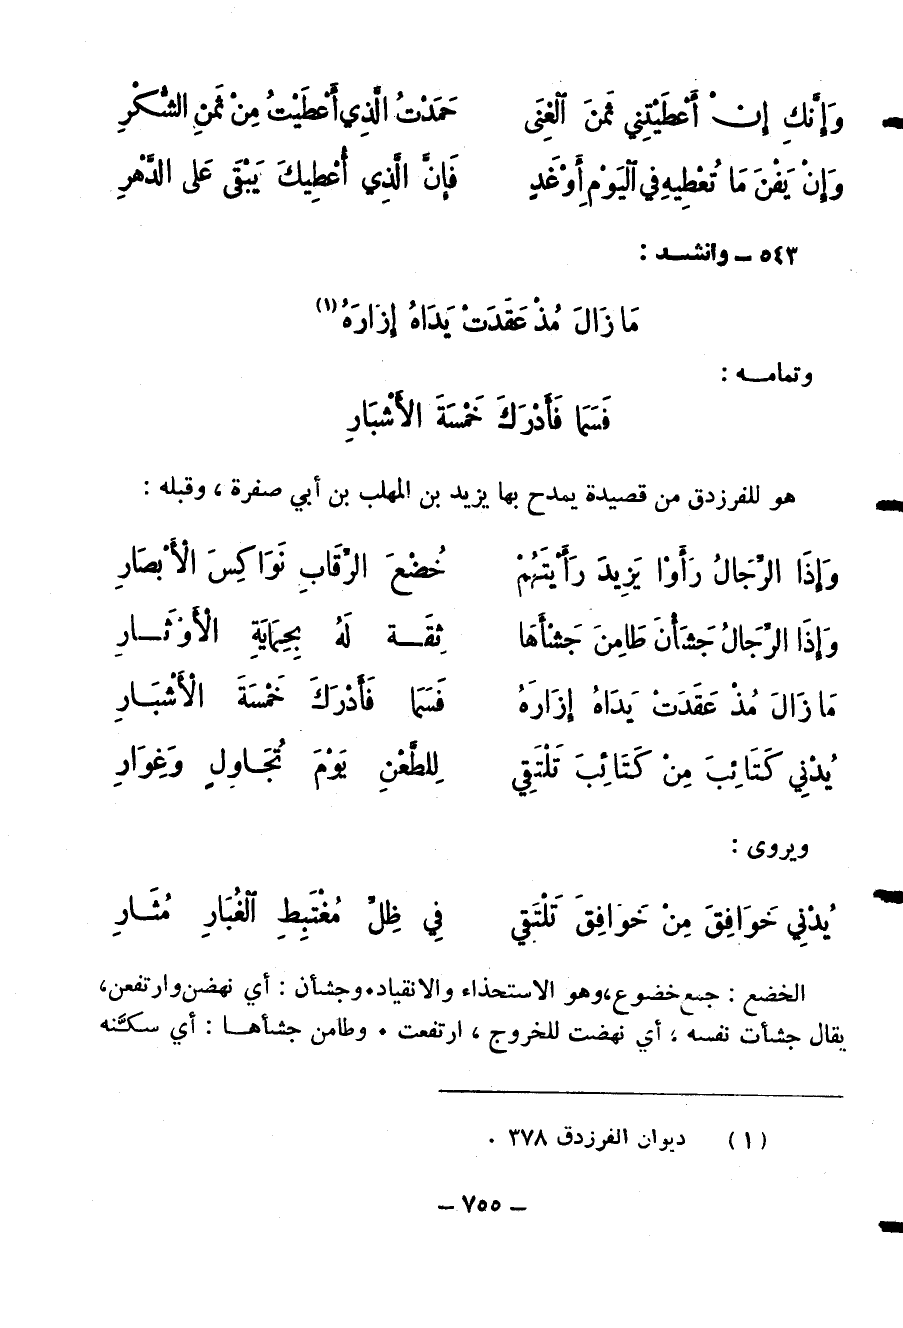 وَإِنَّكِ إِنْ أَعْطَيْتِنِي ثَمَنَ ٱلْغِنَى حَمَدْتُ الَّذِي أَعْطَيْتُ مِنْ ثَمَنِ الشُّكْرِ
وَإِنْ يَفْنَ مَا تُعْطِيهِ فِي ٱلْيَوْمِ أَوْ غَدٍ فَإِنَّ الَّذِي أُعْطِيكَ يَبْقَى عَلَى الدَّهْرِ
٥٤٣ – وانشـد :
مَا زَالَ مُذْ عَقَدَتْ يَدَاهُ إِزَارَهُ (١)
وتمامـه :
فَسَمَا فَأَدْرَكَ خَمْسَةَ الأَشْبَارِ
هو للفرزدق من قصيدة يمدح بها يزيد بن المهلب بن أبي صفرة ، وقبله :
وَإِذَا الرِّجَالُ رَأَوْا يَزِيدَ رَأَيْتَهُمْ خُضْعَ الرِّقَابِ نَوَاكِسَ الْأَبْصَارِ
وَإِذَا الرِّجَالُ جَشَأْنَ طَامِنَ جَشْأَهَا ثِقَـة لَهُ بِحِمَايَةِ الْأَوْثَـارِ
مَا زَالَ مُذْ عَقَدَتْ يَدَاهُ إِزَارَهُ فَسَمَا فَأَدْرَكَ خَمْسَةَ الْأَشْبَـارِ
يُدْنِي كَتَائِبَ مِنْ كَتَائِبَ تَلْتَقِي لِلطَّعْنِ يَوْمَ تُجَـاوِلٍ وَغِوَارِ
ويروى :
يُدْنِي خَوَافِقَ مِنْ خَوَافِقَ تَلْتَقِي فِي ظِلِّ مُغْتَبِطِ ٱلْغُبَارِ مُثَـارِ
الخضع : جمع خضوع،وهو الاستحذاء والانقياد.وجشأن : أي نهضن وارتفعن،
يقال جشأت نفسه ، أي نهضت للخروج ، ارتفعت . وطامن جشأهـا : أي سكَّنه
(١) ديوان الفرزدق ٣٧٨ .
– ٧٥٥ –